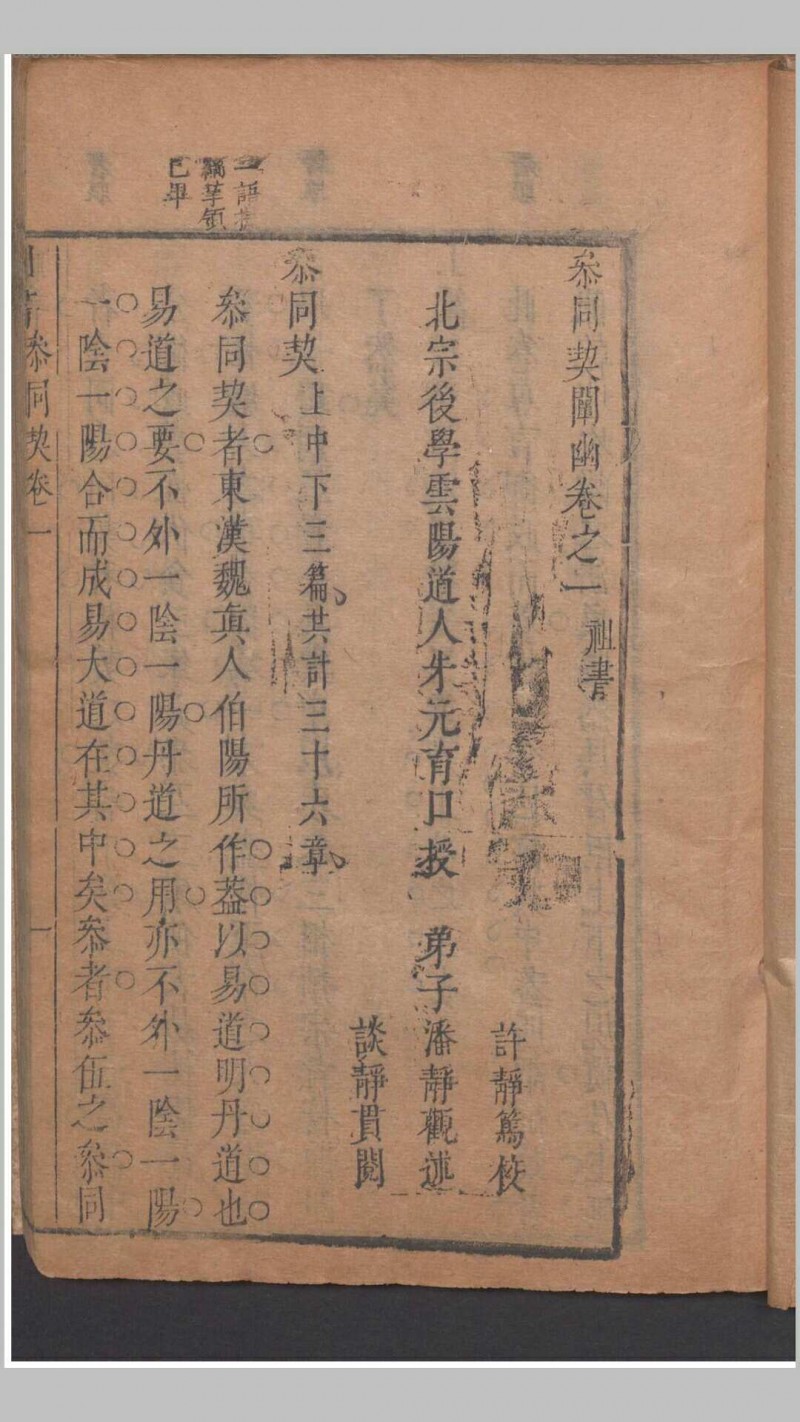 叅同契闡幽卷之一 祖書
許靜篤校
北宗後學雲陽道人朱元育口授 弟子潘靜觀述
談靜貫閱
叅同契上中下三篇共計三十六章
叅同契者東漢魏眞人伯陽所作葢以易道明丹道也
易道之要不外一陰一陽丹道之用亦不外一陰一陽
一陰一陽合而成易大道在其中矣叅者叅伍之叅同
一語
綱革領
已畢
叅同契卷一
一